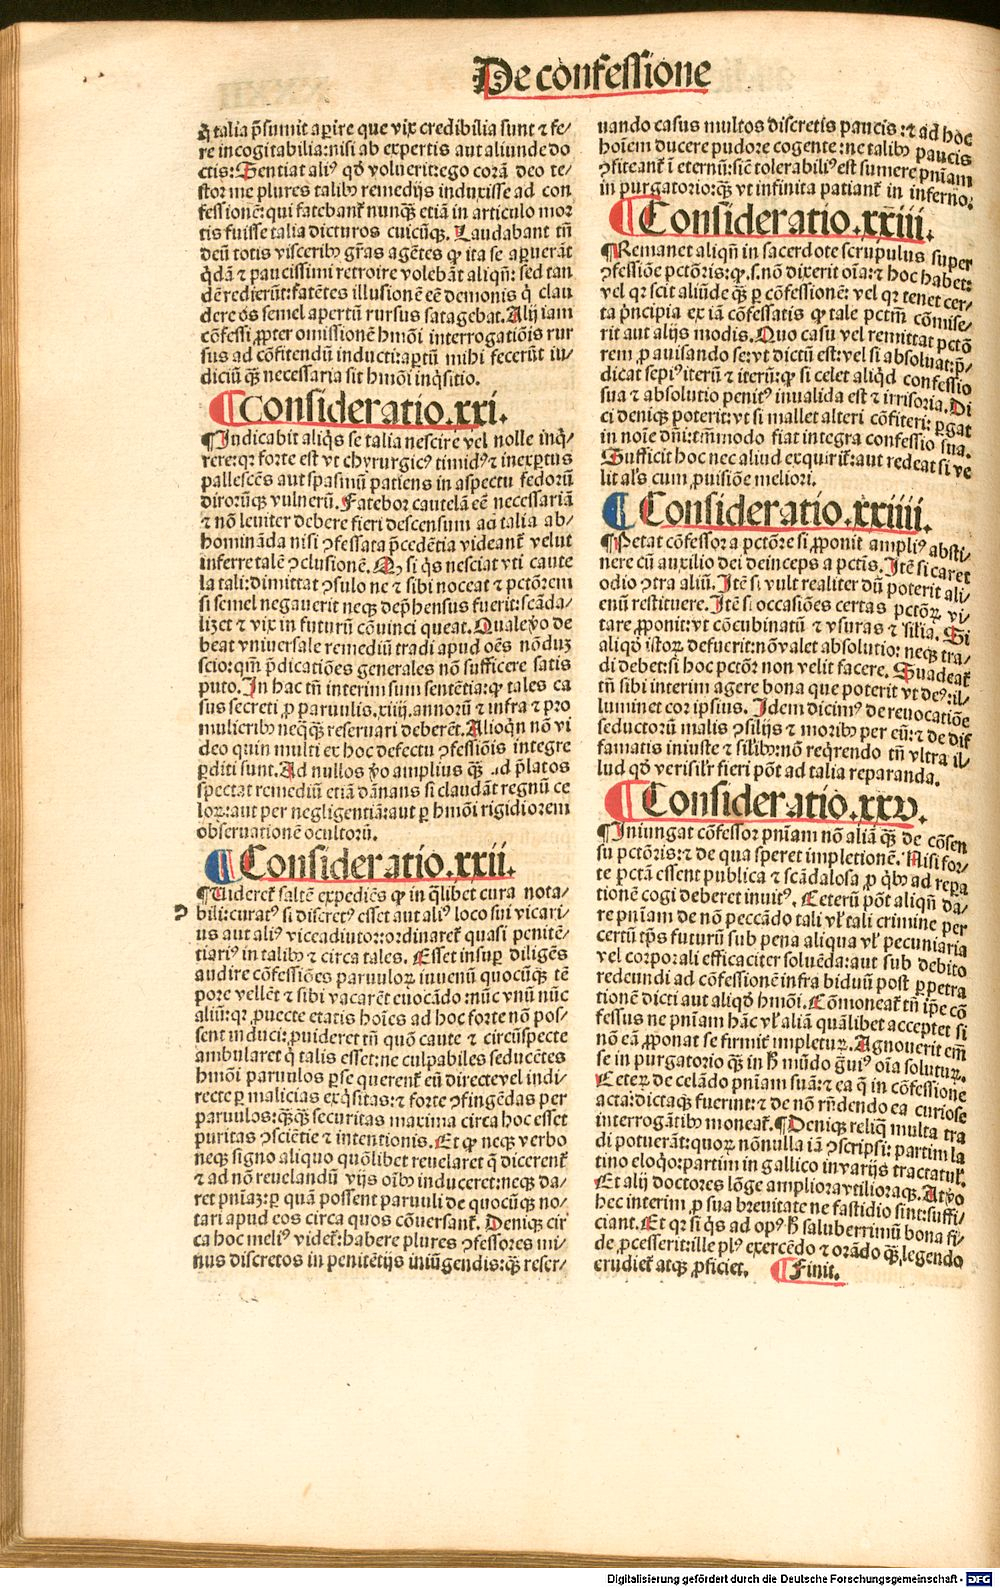 De confessione
q̄ talia p̄sumit aꝑire que vix credibilia sunt ⁊ fe/
re incogitabilia:nisi ab expertis aut aliunde do
ctis:Sentiat aliꝰ qd̓ voluerit:ego corā deo te/
stor me plures talibꝫ remedijs induxisse ad con
fessionē:qui fatebant̄ nunqꝫ etiā in articulo mor
tis fuisse talia dicturos cuicūqꝫ. Laudabant tn̄
deū totis visceribꝫ gr̄as agētes ꝙ ita se aꝑuerāt
q̇dā ⁊ paucissimi retroire volebāt aliqn̄: sed tan
dē redierūt:fatētes illusionē eē demonis q̇ clau
dere os semel apertū rursus satagebat. Alij iam
cōfessi ꝓpter omissionē hmōi interrogatiōis rur
sus ad cōfitendū inducti:aꝑtū mihi fecerūt iu/
diciū qꝫ necessaria sit hmōi inq̇sitio.
¶ Consideratio.xxi.
¶Indicabit aliq̇s se talia nescire vel nolle inq̇/
rere:qꝛ forte est vt chyrurgicꝰ timidꝰ ⁊ inexꝑtus
pallescēs aut spasmū patiens in aspectu fedorū
dirorūqꝫ vulnerū. Fatebor cautelā eē necessariā
⁊ nō leuiter debere fieri descensum ad talia ab/
homināda nisi ꝯfessata p̄cedētia videant̄ velut
inferre talē ꝯclusionē. Qꝫ si q̇s nesciat vti caute
la tali:dimittat ꝯsulo ne ⁊ sibi noceat ⁊ pctōrem
si semel negauerit neqꝫ dep̄hensus fuerit:scāda/
lizet ⁊ vix in futurū cōuinci queat. Quale ꝟo de
beat vniuersale remediū tradi apud oēs nōduꝫ
scio:qm̄ p̄dicatiōes generales nō sufficere satis
puto. In hac tn̄ interim sum sentētia:ꝙ tales ca
sus secreti ꝓ paruulis.xiiij.annorū ⁊ infra ⁊ pro
mulieribꝫ neqꝗꝫ reseruari deberēt. Alioqn̄ nō vi
deo quin multi ex hoc defectu ꝯfessiōis integre
ꝑditi sunt. Ad nullos ꝟo amplius qꝫ ad p̄latos
spectat remediū etiā dānans si claudāt regnū ce
loꝝ:aut per negligentiā:aut ꝑ hmōi rigidiorem
obseruationē ocultorū.
¶ Consideratio.xxii.
¶Videret̄ saltē expediēs ꝙ in q̄libet cura nota/
bili:curatꝰ si discretꝰ esset aut aliꝰ loco sui vicari/
us aut aliꝰ viceadiutor:ordinaret̄ quasi penitē/
tiariꝰ in talibꝫ ⁊ circa tales. Esset insuꝑ diligēs
audire cōfessiōes paruuloꝝ iuuenū quocūqꝫ tē
pore vellēt ⁊ sibi vacarēt euocādo:nūc vnū nūc
aliū:qꝛ ꝓuecte etatis hoīes ad hoc forte nō pos/
sent induci:ꝓuideret tn̄ quō caute ⁊ circūspecte
ambularet q̇ talis esset:ne culpabiles seducētes
hmōi paruulos ꝑ se querent̄ eū directe vel indi/
recte ꝑ malicias exq̇sitas:⁊ forte ꝯfingēdas per
paruulos:qꝫqꝫ securitas maxima circa hoc esset
puritas ꝯsciētie ⁊ intentionis. Et ꝙ neqꝫ verbo
neqꝫ signo aliquo quōlibet reuelaret q̄ dicerent̄
⁊ ad nō reuelandū vijs oībꝫ induceret:neqꝫ da/
ret pniāꝫ:ꝑ quā possent paruuli de quocūqꝫ no/
tari apud eos circa quos cōuersant̄. Deniqꝫ cir
ca hoc meliꝰ videt̄:habere plures ꝯfessores mi/
nus discretos in penitētijs iniūgendis:qꝫ reser/
uando casus multos discretis paucis:⁊ ad hoc
hoīem ducere pudore cogente:ne talibꝫ paucis
ꝯfiteant̄ ī eternū:sic̄ tolerabiliꝰ est sumere pniam
in purgatorio:qꝫ vt infinita patiant̄ in inferno.
¶ Consideratio.xxiii.
¶Remanet aliqn̄ in sacerdote scrupulus super
ꝯfessiōe pctōris:ꝙ.s.nō dixerit oīa:⁊ hoc habet:
vel qꝛ scit aliūde qꝫ ꝑ cōfessionē: vel qꝛ tenet cer/
ta p̄ncipia ex iā cōfessatis ꝙ tale pctm̄ cōmise/
rit aut alijs modis. Quo casu vel remittat pctō
rem ꝓ auisando se:vt dictū est:vel si absoluat:p̄/
dicat sepiꝰ iterū ⁊ iterū:ꝙ si celet aliq̇d confessio
sua ⁊ absolutio penitꝰ inualida est ⁊ irrisoria. Di
ci deniqꝫ poterit:vt si mallet alteri cōfiteri: ꝑgat
in noīe dn̄i:tm̄modo fiat integra confessio sua.
Sufficit hoc nec aliud exquirit̄:aut redeat si ve
lit al̓s cum ꝓuisiōe meliori.
¶ Consideratio.xxiiii.
¶Petat cōfessor a pctōre si ꝓponit ampliꝰ absti/
nere cū auxilio dei deinceps a pctīs. Itē si caret
odio ꝯtra aliū. Itē si vult realiter dū poterit ali/
enū restituere. Itē si occasiōes certas pctōꝝ vi/
tare ꝓponit:vt cōcubinatū ⁊ vsuras ⁊ sil̓ia. Si
aliqd̓ istoꝝ defuerit:nō valet absolutio: neqꝫ tra/
di debet:si hoc pctōr non velit facere. Suadeat̄
tn̄ sibi interim agere bona que poterit vt deꝰ:il/
luminet cor ipsius. Idem dicimꝰ de reuocatiōe
seductorū malis ꝯsilijs ⁊ moribꝫ per eū:⁊ de dif
famatis iniuste ⁊ sil̓ibꝫ:nō req̇rendo tn̄ vltra il/
lud qd̓ verisil̓r fieri pōt ad talia reparanda.
¶ Consideratio.xxv.
¶Iniungat cōfessor pniam nō aliā qꝫ de cōsen
su pctōris:⁊ de qua speret impletionē. Nisi for/
te pctā essent publica ⁊ scādalosa ꝓ qͥbꝫ ad repa
tionē cogi deberet inuitꝰ. Ceterū pōt aliqn̄ da/
re pniam de nō peccādo tali vl̓ tali crimine per
certū tp̄s futurū sub pena aliqua vl̓ pecuniaria
vel corporali efficaciter soluēda:aut sub debito
redeundi ad cōfessionē infra biduū post ꝑpetra
tionē dicti aut aliqd̓ hmōi. Cōmoneat̄ tn̄ ip̄e cō
fessus ne pniam hāc vl̓ aliā quālibet acceptet si
nō eā ꝓponat se firmit̓ impletuꝝ. Agnouerit em̄
se in purgatorio qꝫ in h̄ mūdo g̓uiꝰ oīa solutuꝝ.
Ceteꝝ de celādo pniam suā:⁊ ea q̄ in cōfessione
acta:dictaqꝫ fuerint:⁊ de nō rn̄dendo ea curiose
interrogātibꝫ moneat̄. ¶Deniqꝫ reliq̄ multa tra
di potuerāt:quoꝝ nōnulla iā ꝯscripsi: partim la
tino eloq̇o:partim in gallico in varijs tractatul̓.
Et alij doctores lōge ampliora vtilioraqꝫ. At ꝟo
hec interim ꝓ sua breuitate ne fastidio sint:suffi/
ciant. Et qꝛ si q̇s ad opꝰ h̄ saluberrimū bona fi/
de ꝓcesserit:ille plꝰ exercēdo ⁊ orādo qꝫ legendo
erudiet̄ atqꝫ ꝓficiet. ¶ Finit.
Digitalisierung gefördert durch die Deutsche Forschungsgemeinschaft - DFG